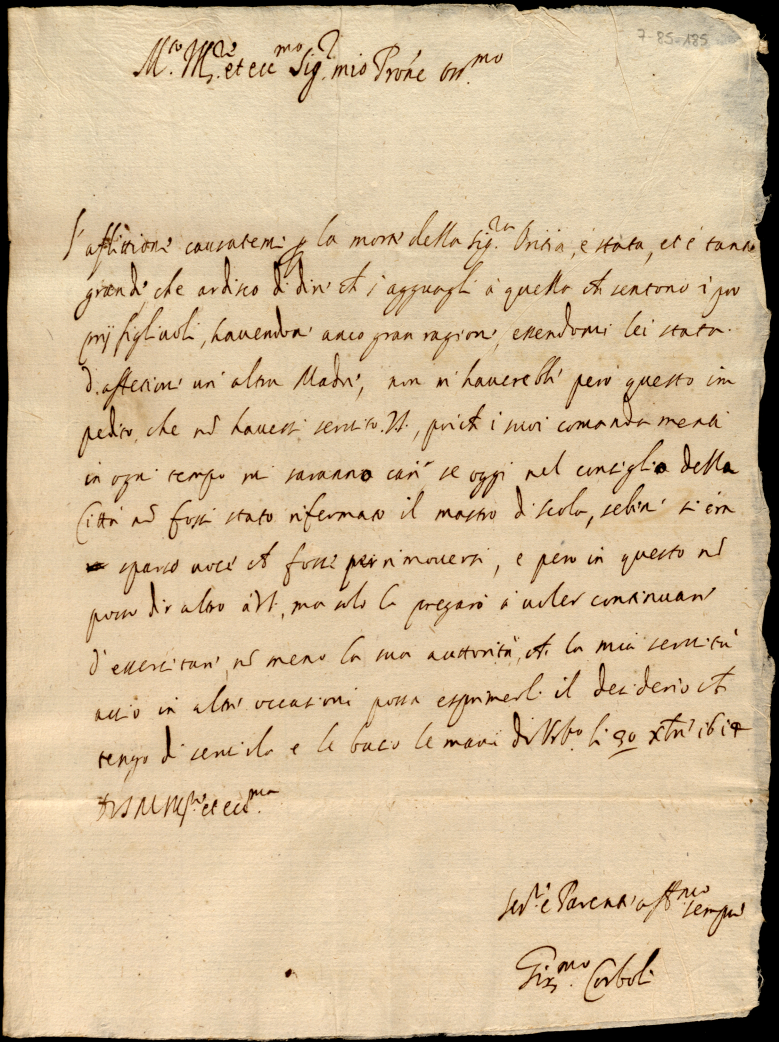 7-85-185
M.to Ill.re et ecc.mo Sig.r mio Prone oss.mo
l'aflittione causatemi p la morte della Sig.ra Oritia, è stata, et è tanto
grande, che ardisco di dire ch s'agguagli à quella ch sentono i pro
prij figliuoli, havendone anco gran ragione, essendomi lei stata
d'affetione un'altra Madre, non m'haverebbe però questo im
pedito, che nõ havessi servito V.S., poich i suoi comandamenti
in ogni tempo mi saranno cari, se oggi nel consiglio della
Città nõ fosse stato rifermato il mastro di scola, sebene si era
sparso voce ch fosse per rimoversi, e però in questo nõ
posso dir altro à V.S., ma solo la pregarò à voler continuare
d'essercitare nõ meno la sua auttorità, ch la mia servitù
acciò in altre occasioni possa esprimerli il desiderio ch
tengo di servirla e le bacio le mani di Urb.o li 30 xbre 1614
Di V.S. M. Ill.re et ecc.ma
Ser.re e Parente aff.mo sempre
Gir.mo Corboli